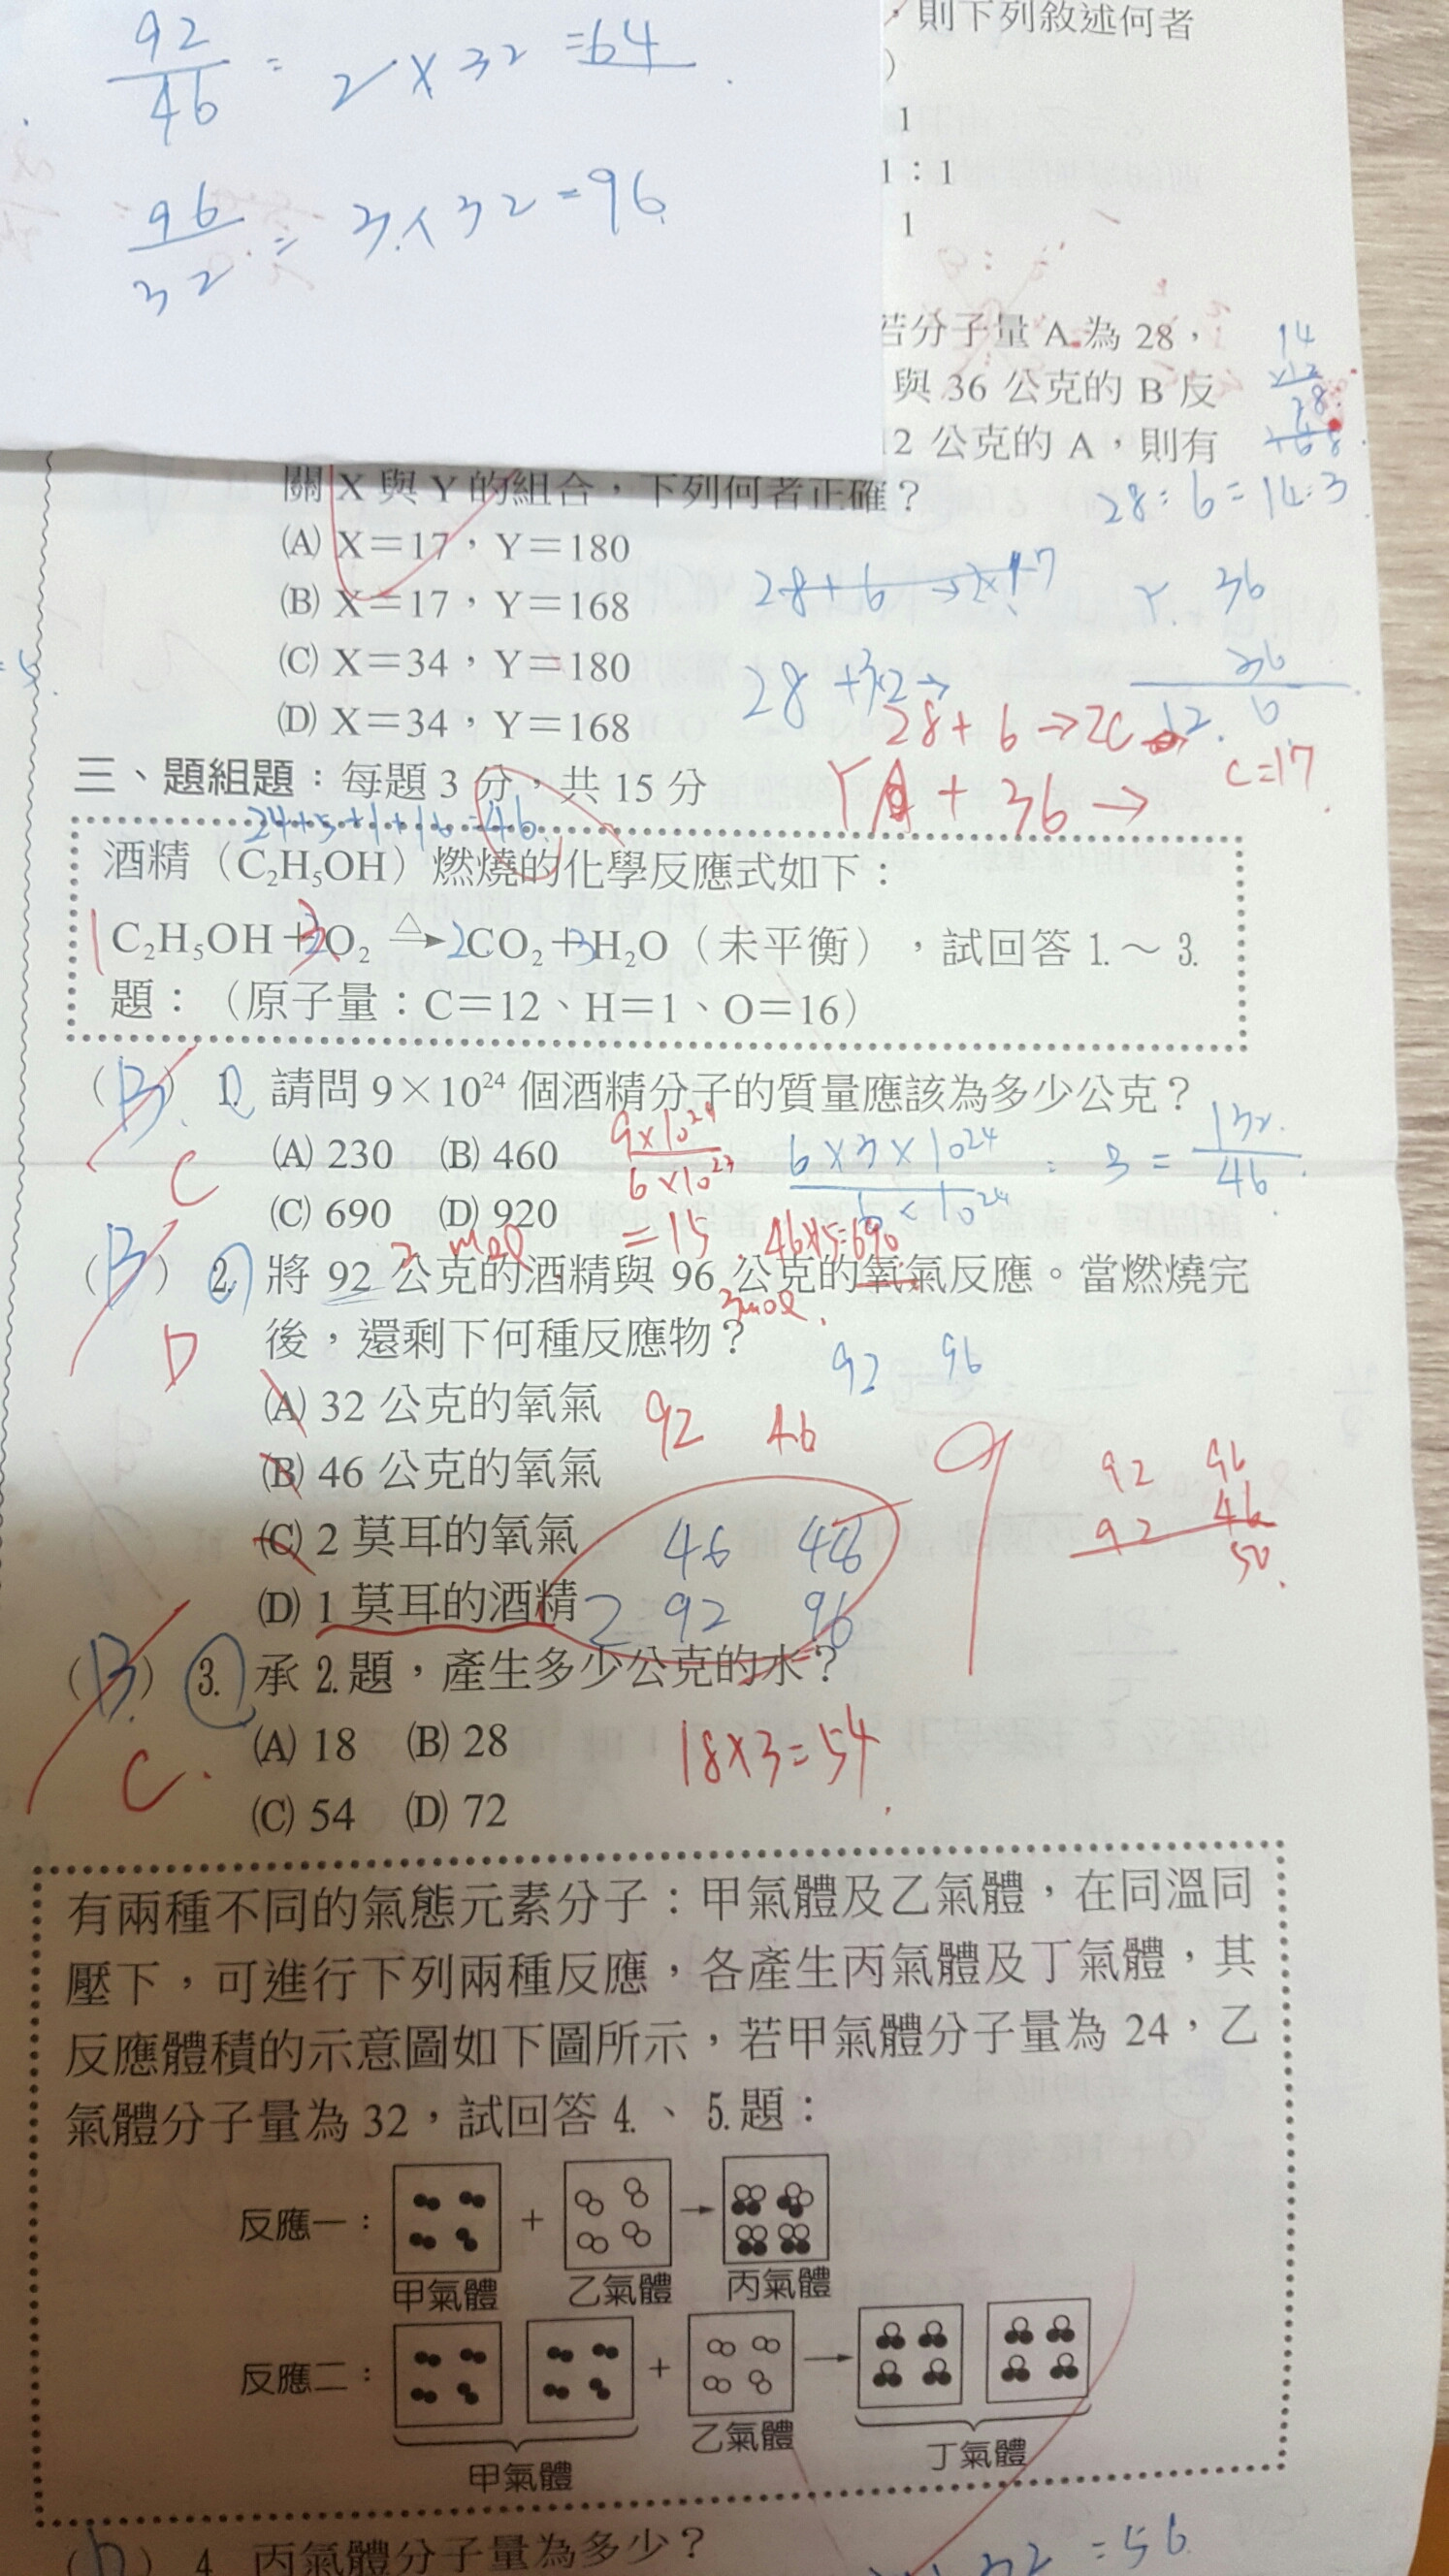 92/46 = 2×32 =64
96/32 = 3×32=96
，則下列敘述何者
)
1
1：1
1
若分子量 A 為 28，
與 36 公克的 B 反
12 公克的 A，則有
關 X 與 Y 的組合，下列何者正確？
28：6=14：3
(A) X＝17，Y＝180
(B) X＝17，Y＝168
(C) X＝34，Y＝180
(D) X＝34，Y＝168
28+6→2C
C=17
三、題組題：每題 3 分，共 15 分
24+5+1+16=46
酒精（C₂H₅OH）燃燒的化學反應式如下：
1C₂H₅OH＋3O₂ △→ 2CO₂＋3H₂O（未平衡），試回答 1.～ 3.
題：（原子量：C＝12、H＝1、O＝16）
(B) 1. 請問 9×10²⁴ 個酒精分子的質量應該為多少公克？
C
(A) 230 (B) 460
(C) 690 (D) 920
9×10²⁴/6×10²³
=15
46×15=690
(B) 2. 將 92 公克的酒精與 96 公克的氧氣反應。當燃燒完
2 mol
3mol
D
後，還剩下何種反應物？
92 96
(A) 32 公克的氧氣
92 46
(B) 46 公克的氧氣
(C) 2 莫耳的氧氣
(D) 1 莫耳的酒精
92 96
92 46
50
(B) 3. 承 2. 題，產生多少公克的水？
C
(A) 18 (B) 28
18×3=54
(C) 54 (D) 72
有兩種不同的氣態元素分子：甲氣體及乙氣體，在同溫同
壓下，可進行下列兩種反應，各產生丙氣體及丁氣體，其
反應體積的示意圖如下圖所示，若甲氣體分子量為 24，乙
氣體分子量為 32，試回答 4.、5. 題：
反應一：＋→
甲氣體 乙氣體 丙氣體
反應二：＋→
甲氣體 乙氣體 丁氣體
4. 丙氣體分子量為多少？
=56